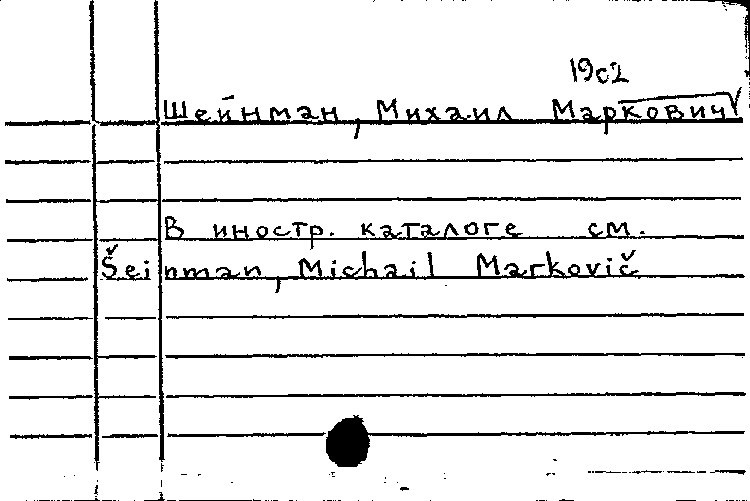 19c2
Шейнман, Михаил Маркович
В иностр. каталоге см.
Šeinman, Michail Markovič